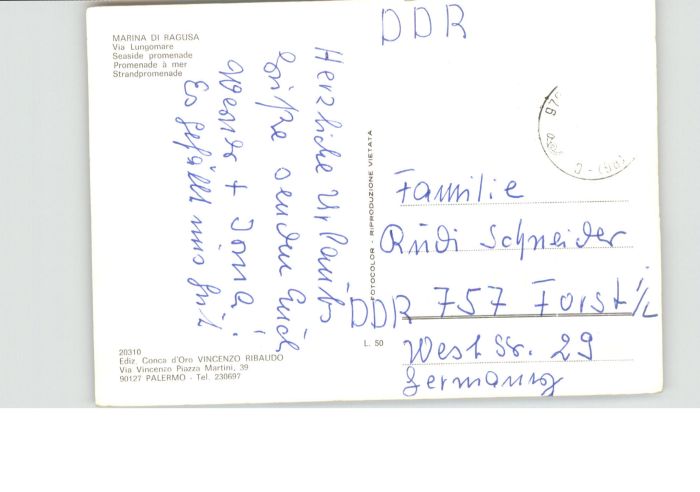 MARINA DI RAGUSA
Via Lungomare
Seaside promenade
Promenade à mer
Strandpromenade
Herzliche Urlaubs
Grüße senden Euch
+ Irina!
Es gefällt uns gut
20310
Ediz. Conca d'Oro VINCENZO RIBAUDO
Via Vincenzo Piazza Martini, 39
90127 PALERMO - Tel. 230697
FOTOCOLOR - RIPRODUZIONE VIETATA
L. 50
DDR
Familie
Rudi Schneider
DDR 757 Forst i/L
West Str. 29
Germany